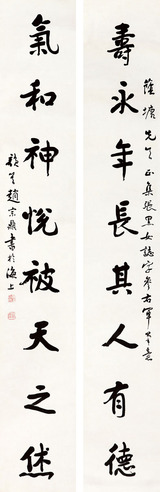 壽永年長其人有德
蔭塘先生正集張黑女誌字參右軍
氣和神悅被天之休
趙宗
書於海上